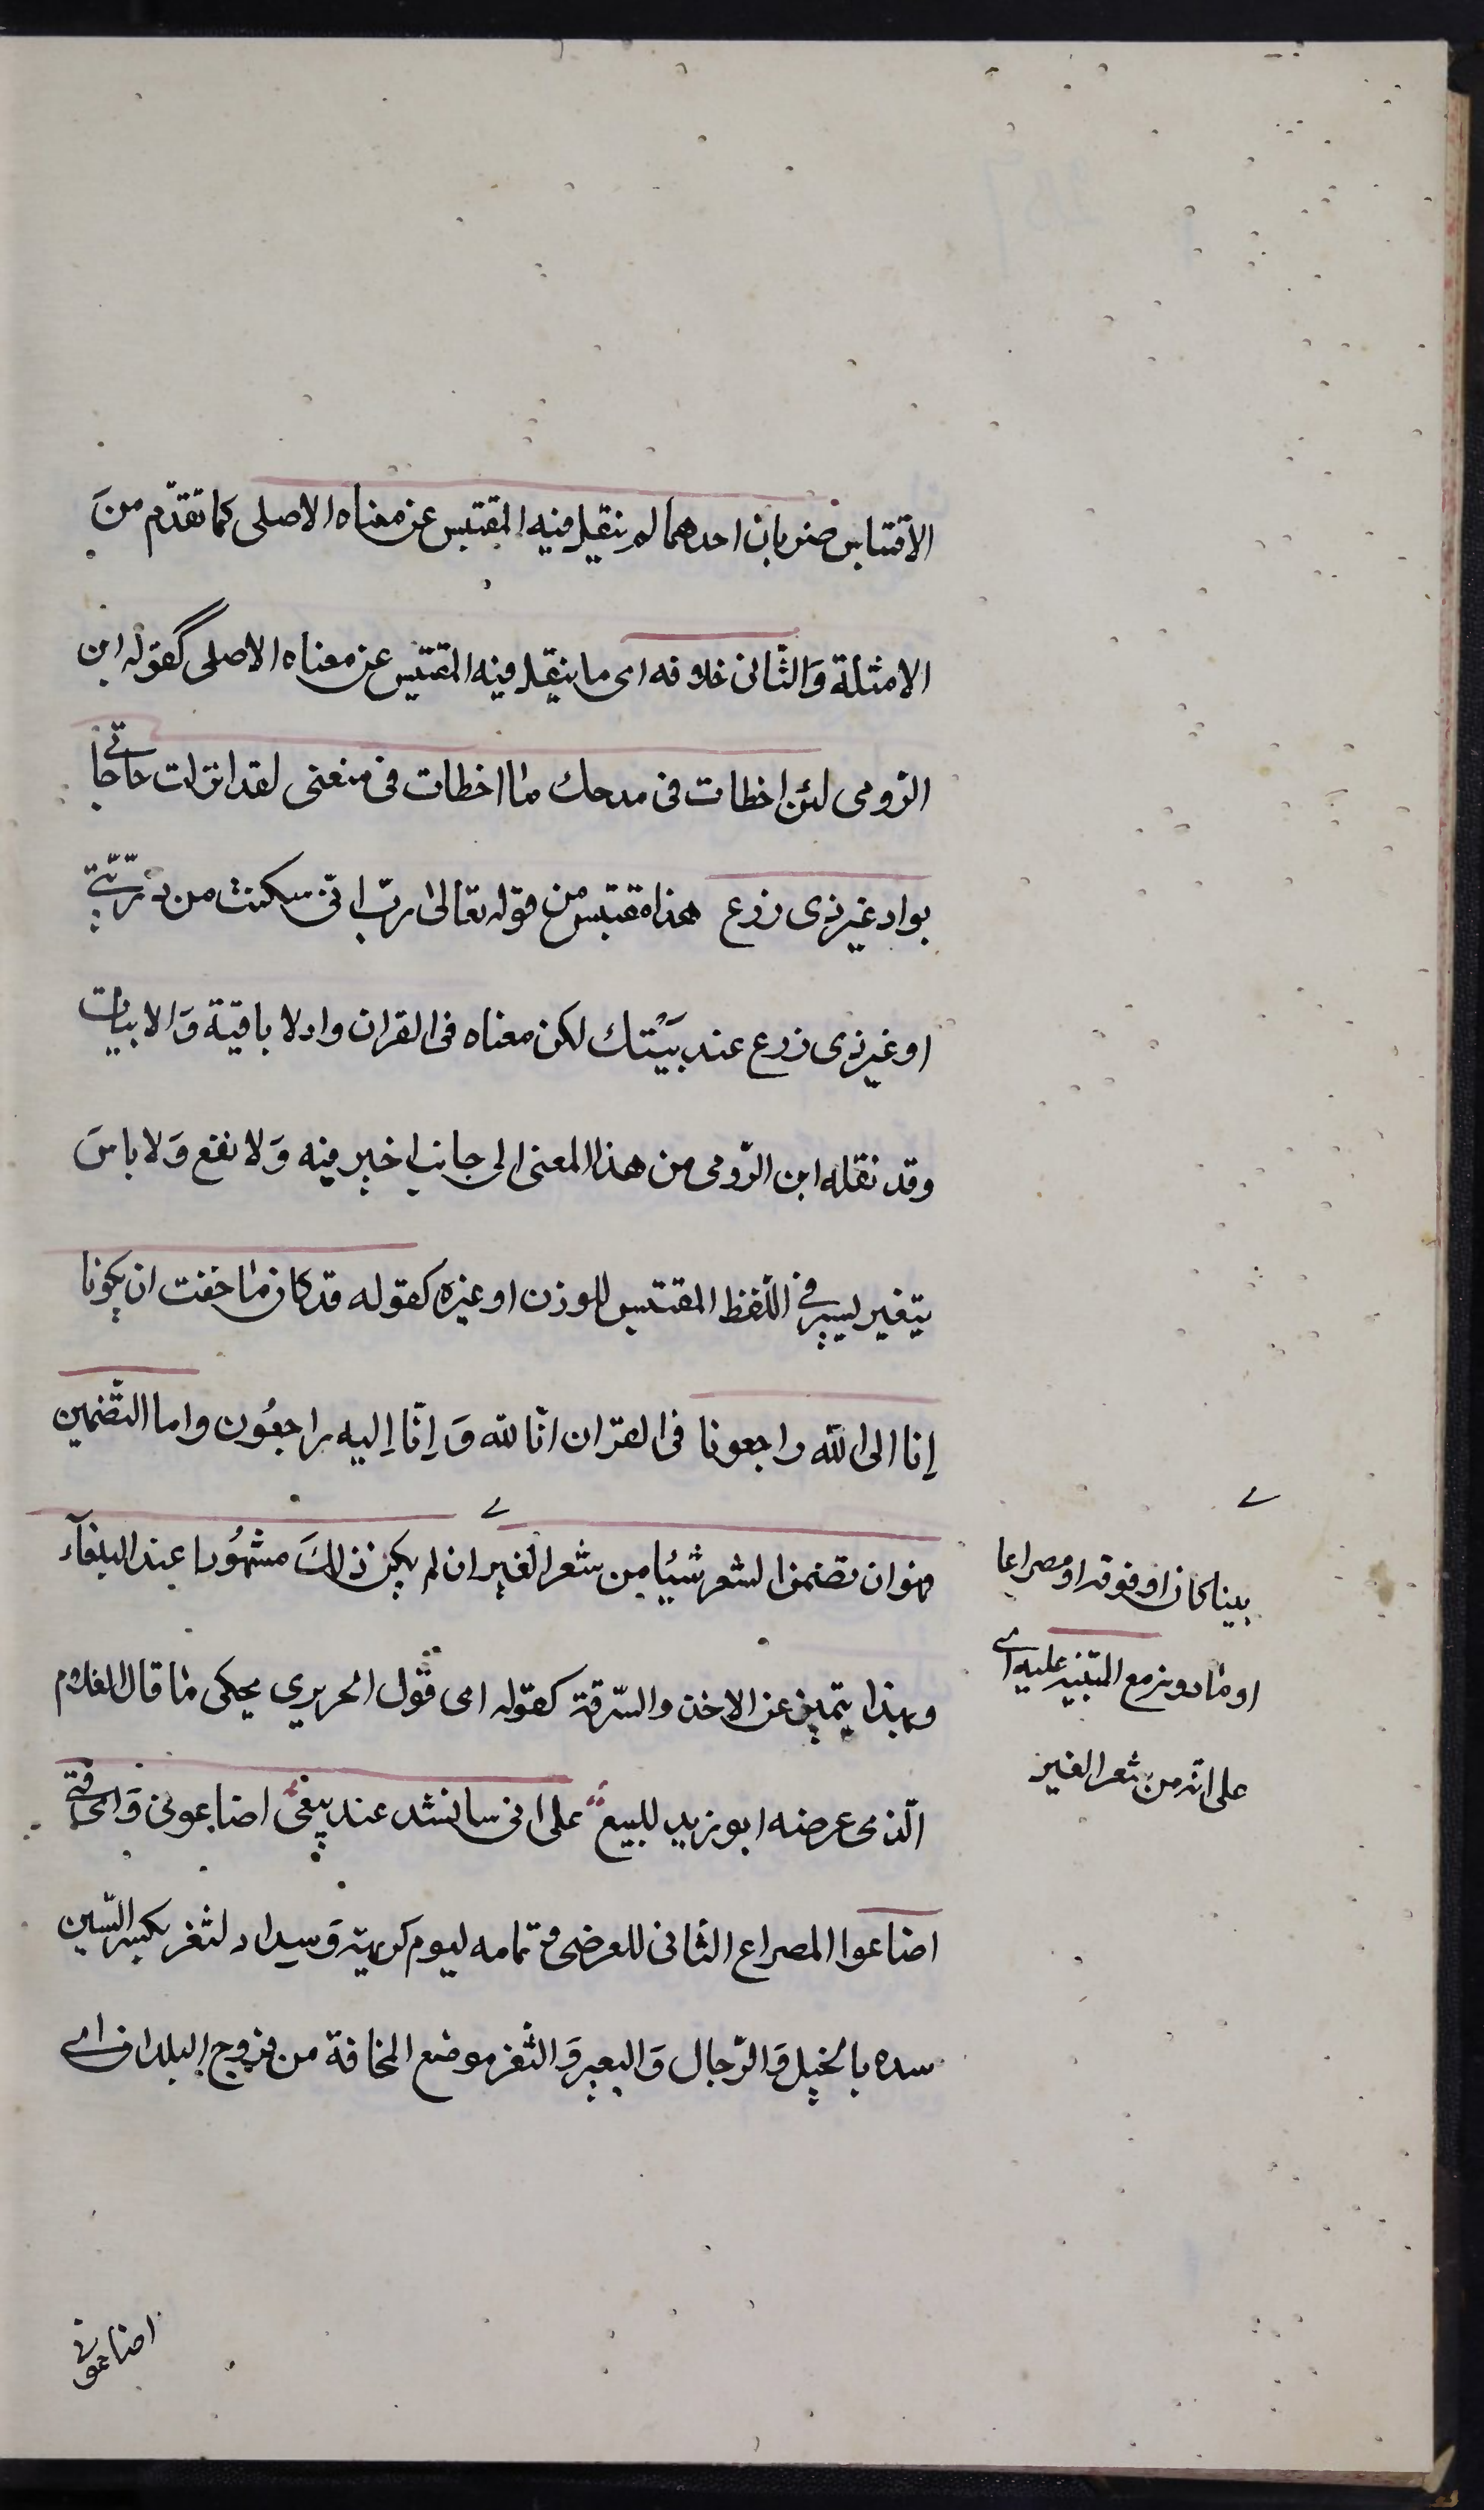 الاقتباس ضربان احدهما لم ينقل فيه المقتبس عن معناه الاصلى كما تقدّم منَ
الامثلة وَالثانى خلافه اى ما ينقل فيه المقتبس عن معناه الاصلى كقوله ابن
الرّومى لئن اخطات فى مدحك ما اخطات فى منعى لقد انزلت حاجاتى
بواد غير ذى زرع هذا مقتبس من قوله تعالى ربّ انّى سكنت من ذرّيّتى
او غير ذى زرع عند بيْتك لكن معناه فى القران واد لا باقية وَالابيات
وقد نقله ابن الرّومى من هذا المعنى الى جانب اخير فيه وَلا نفع وَلا باسَ
بتغير يسير فى اللّفظ المقتبس للوزن او غيره كقوله قد كان ما خفت ان يكونا
إنا الى الله راجعونا فى القران انّا لله وَ إنّا إليه راجعُون واما التّضمين
فهو ان تضمن الشعر شيئا من شعر الغير ان لم يكن ذالكَ مشهُورا عند البلغآء
وبهذا يتميز عن الاخذ والسّرقة كقوله اى قول الحريري يحكى ما قال الغلام
الّذى عرضه ابو زيد للبيع على انى سانشد عند بيعى اضاعونى وَاىّ فتى
اضاعوا المصراع الثانى للعرضى و تمامه ليوم كريهة وَسِداد لثغر بكسر السّين
سده بالخيل وَالرّجال وَالبعير وَالثّغر موضع المخافة من فروج البلدان اى
بيتا كان او فوقه او مصراعا
او ما دونه مع التنبيه عليه اى
على انّه من شعر الغير
اضاعونى